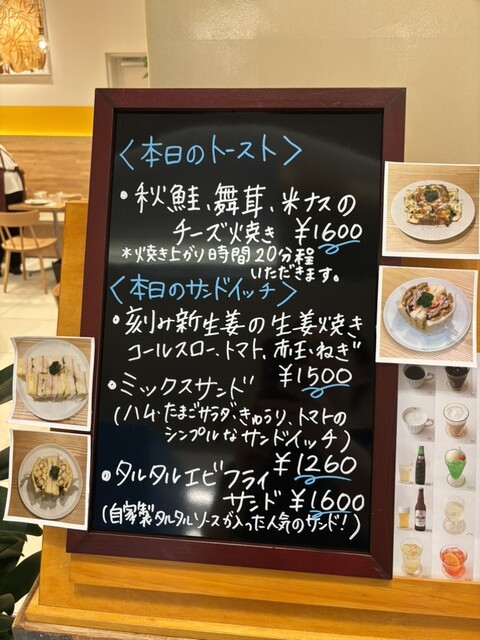 〈本日のトースト〉
・秋鮭、舞茸、米ナスの
チーズ焼き ¥1600
*焼き上がり時間20分程
いただきます。
〈本日のサンドイッチ〉
・刻み新生姜の生姜焼き
コールスロー、トマト、赤玉ねぎ
¥1500
・ミックスサンド
(ハム、たまごサラダ、きゅうり、トマトの
シンプルなサンドイッチ)
¥1260
・タルタルエビフライ
サンド ¥1600
(自家製タルタルソースが入った人気のサンド!)